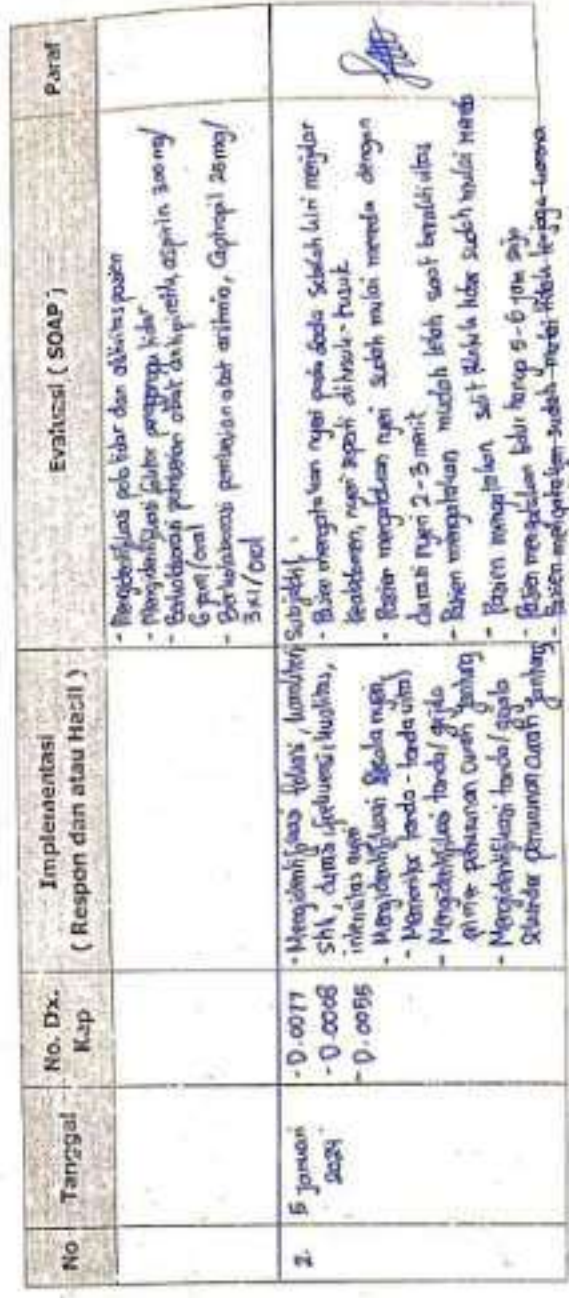 No
Tanggal
No. Dx. Kep
Implementasi
( Respon dan atau Hasil )
Evaluasi ( SOAP )
Paraf
- Mengidentifikasi pola tidur dan aktivitas pasien
- Mengidentifikasi faktor pengganggu tidur
- Berkolaborasi pemberian obat antipiretik, aspirin 300 mg/
6 jam/oral
- Berkolaborasi pemberian obat aritmia, Captropil 25mg/
3x1/oral
2.
5 Januari
2024
- D.0077
- D.0008
- D.0055
- Mengidentifikasi lokasi,
durasi, frekuensi, kualitas,
intensitas nyeri
- Mengidentifikasi skala nyeri
- Memonitor tanda-tanda vital
- Mengidentifikasi tanda/gejala
primer penurunan curah jantung
- Mengidentifikasi tanda/gejala
sekunder penurunan curah jantung
Subjektif:
- Pasien mengatakan nyeri pada dada sebelah kiri menjalar
nyeri seperti ditusuk-tusuk
- Pasien mengatakan nyeri sudah mulai mereda dengan
durasi nyeri 2-3 menit
- Pasien mengatakan mudah lelah saat beraktivitas
- Pasien mengatakan sulit tidur sudah mulai
- Pasien mengatakan tidur hanya 5-6 jam saja
- Pasien mengatakan sudah mulai terjaga karena